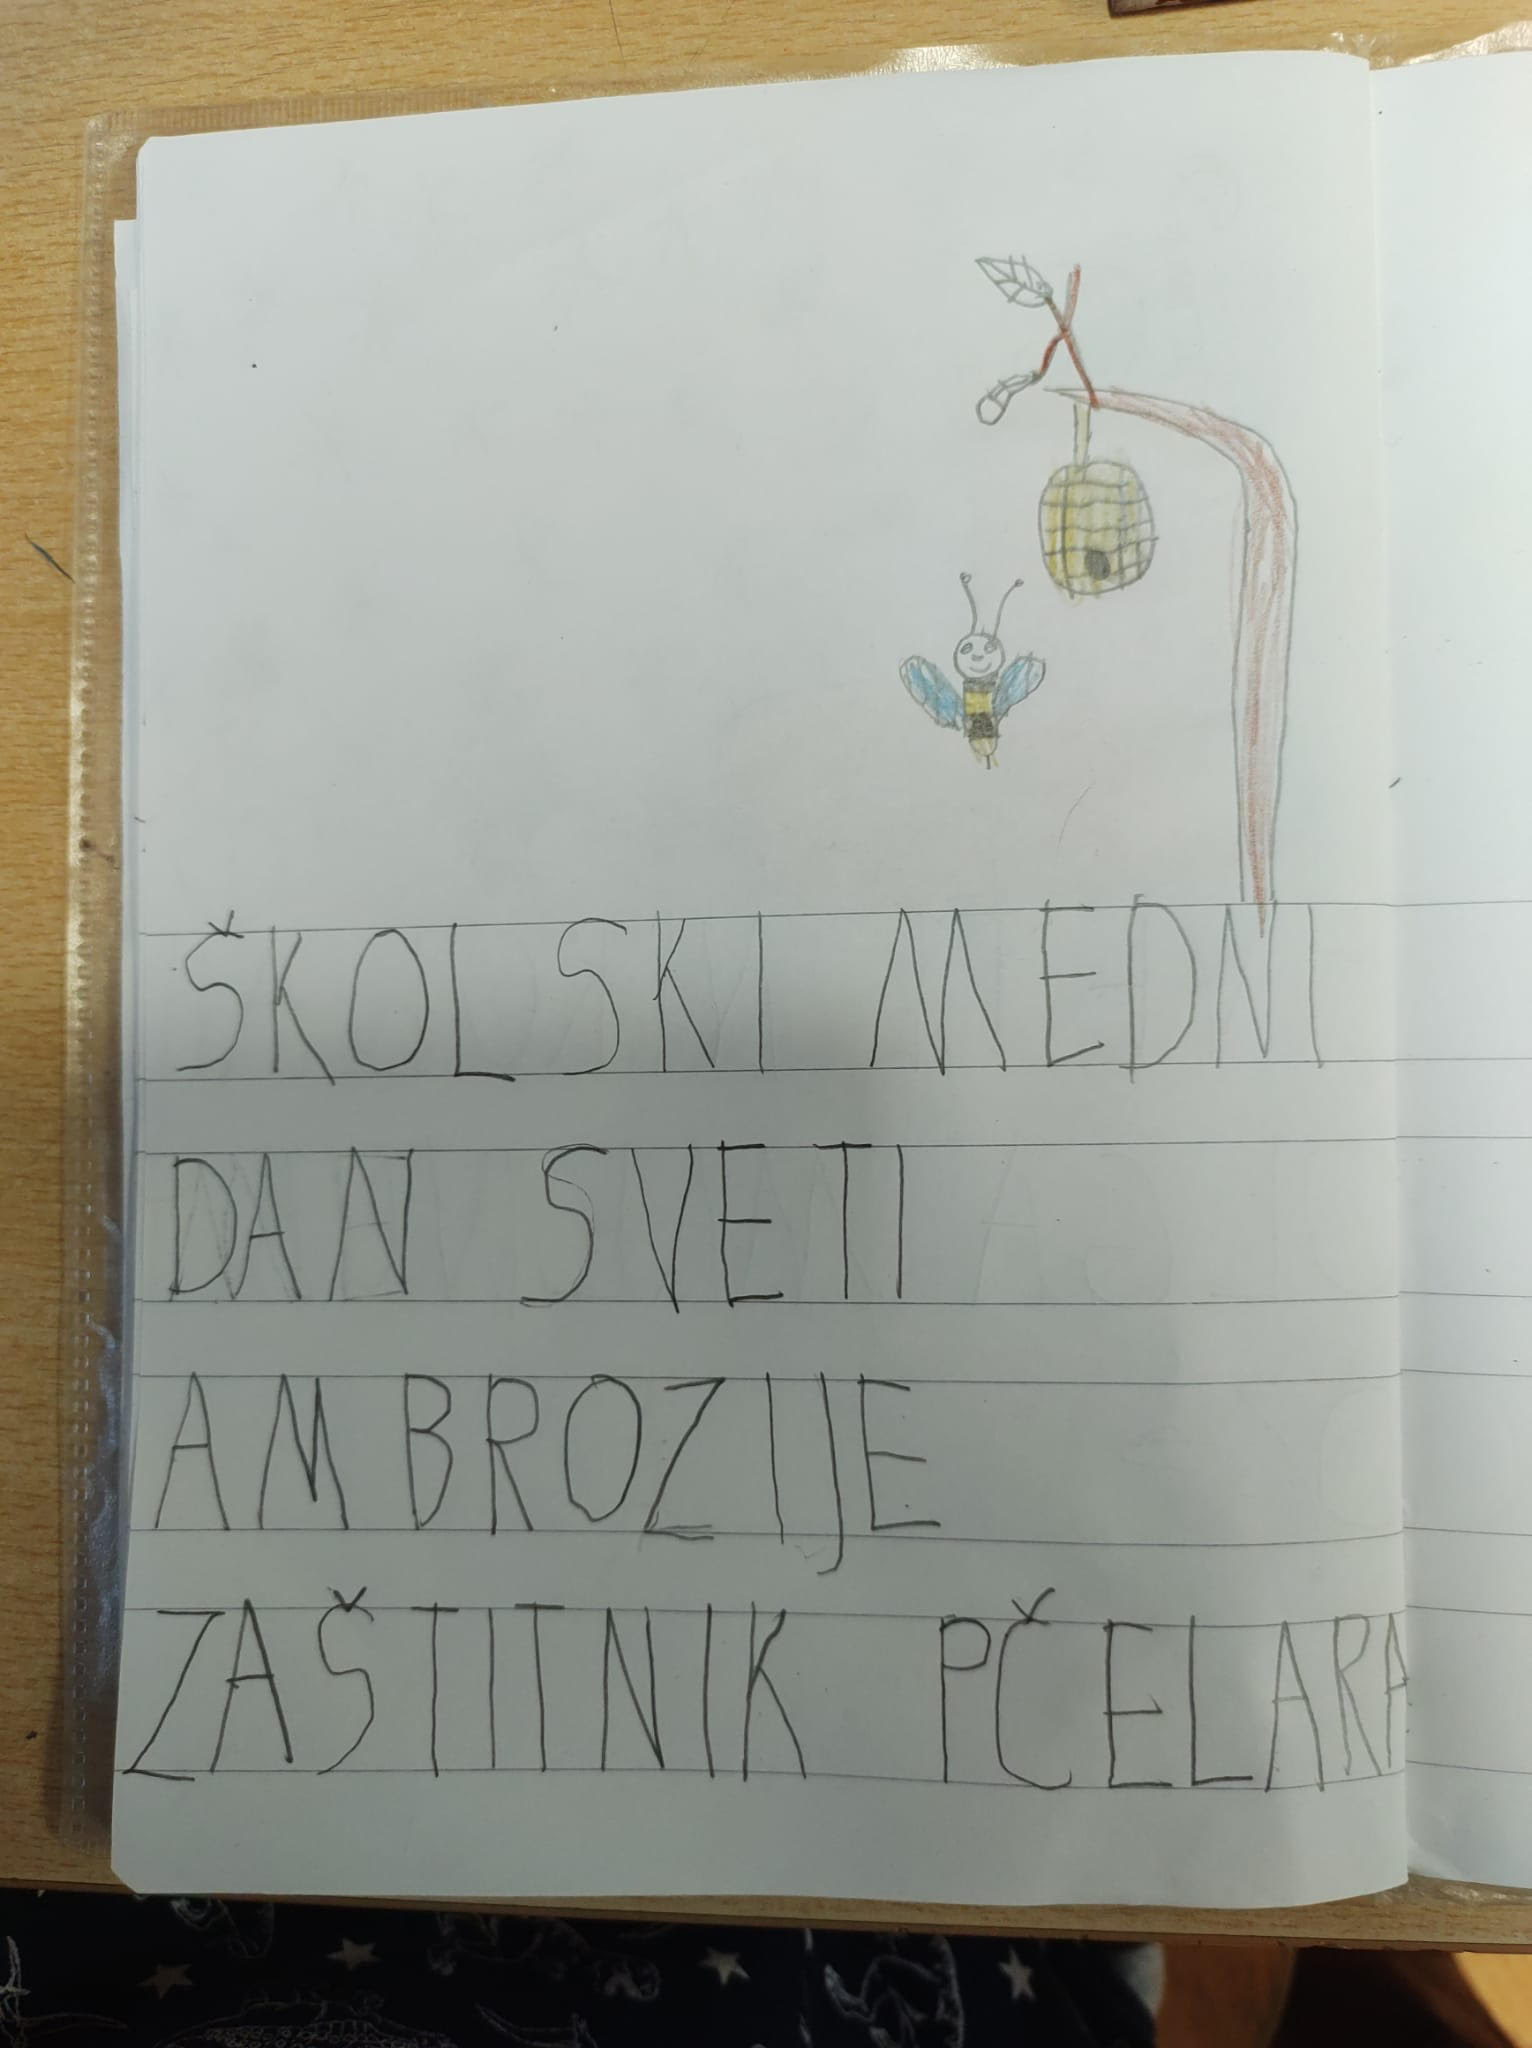 ŠKOLSKI MEDNI
DAN SVETI
AMBROZIJE
ZAŠTITNIK PČELARA